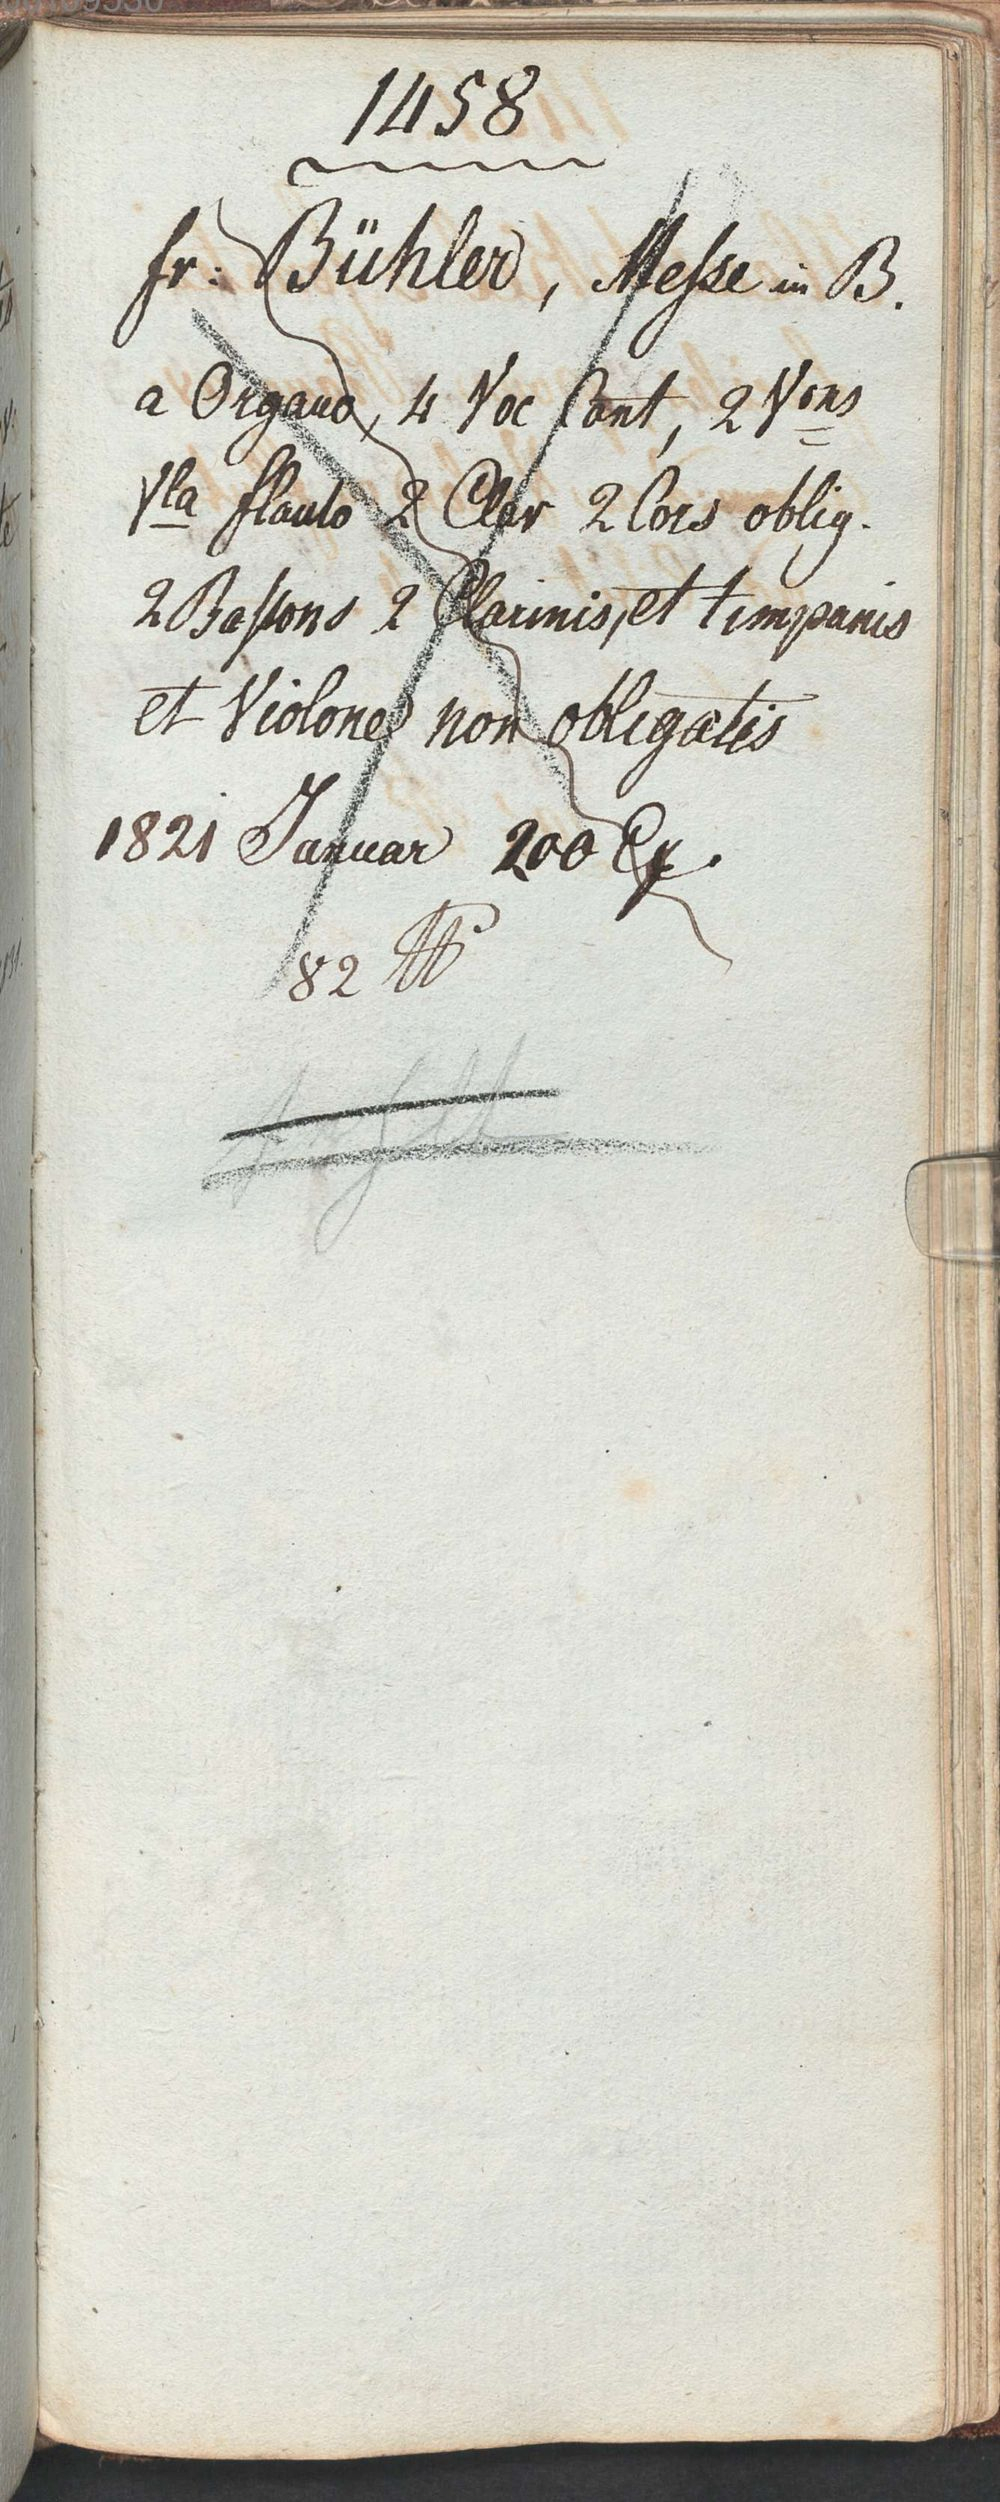 1458
fr: Bühler, Messe in B.
a Organo, 4 Voc Cant, 2 Vons
Vla flauto 2 Clar 2 Cors oblig.
2 Bassons 2 Clarinis, et timpanis
et Violone non obligatis
1821 Januar 200 Ex.
82